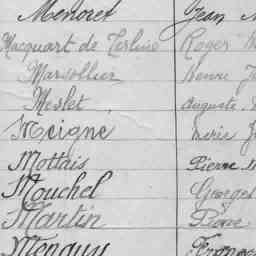 Menoret Jean
Macquart de Terline Roger
Marsollier Henri
Meslet Auguste
Meigné Marie
Mottais Pierre
Mouchel Georges
Martin Pierre
Menguy